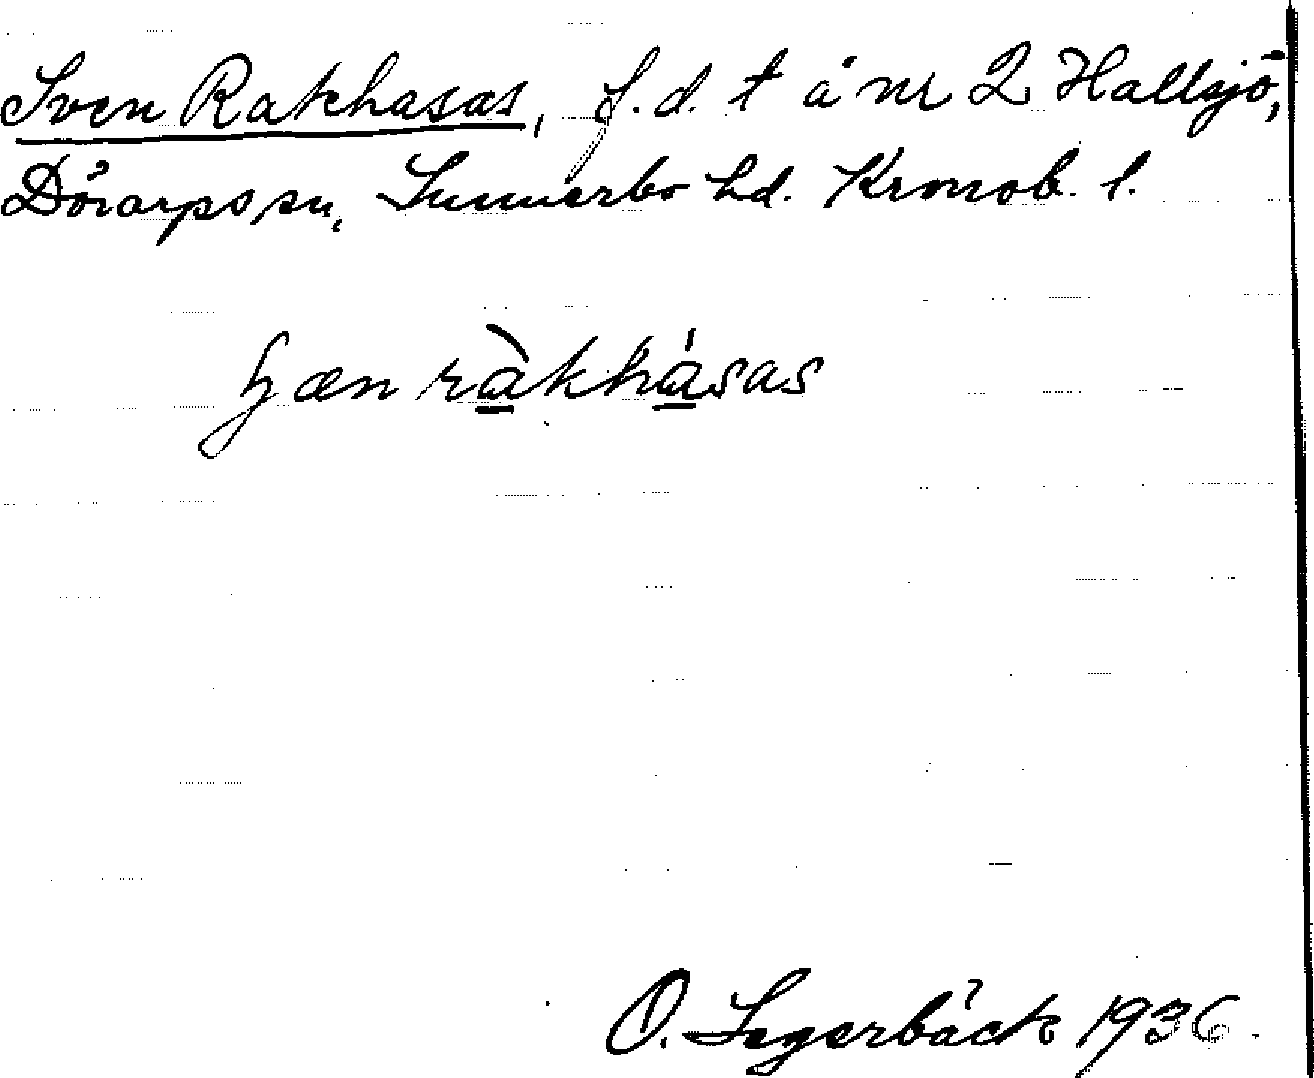 Sven Rakhasas, f.d. t å nr 2 Hallsjö,
Dörarps sn, Sunnerbo hd. Kronob. l.
hæn ràkhásas
O. Segerbäck 1936.